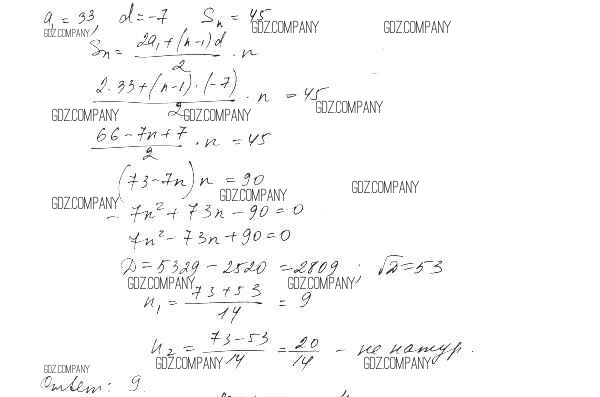 a₁ = 33, d = -7 Sₙ = 45
GDZ.COMPANY GDZ.COMPANY GDZ.COMPANY
Sₙ = (2a₁ + (n-1)d)/2 · n
(2·33 + (n-1)·(-7))/2 · n = 45
GDZ.COMPANY GDZ.COMPANY GDZ.COMPANY
(66 - 7n + 7)/2 · n = 45
(73 - 7n) n = 90
GDZ.COMPANY GDZ.COMPANY GDZ.COMPANY
- 7n² + 73n - 90 = 0
7n² - 73n + 90 = 0
D = 5329 - 2520 = 2809; √D = 53
GDZ.COMPANY GDZ.COMPANY
n₁ = (73 + 53)/14 = 9
n₂ = (73 - 53)/14 = 20/14 - не натур.
GDZ.COMPANY GDZ.COMPANY GDZ.COMPANY
Ответ: 9.